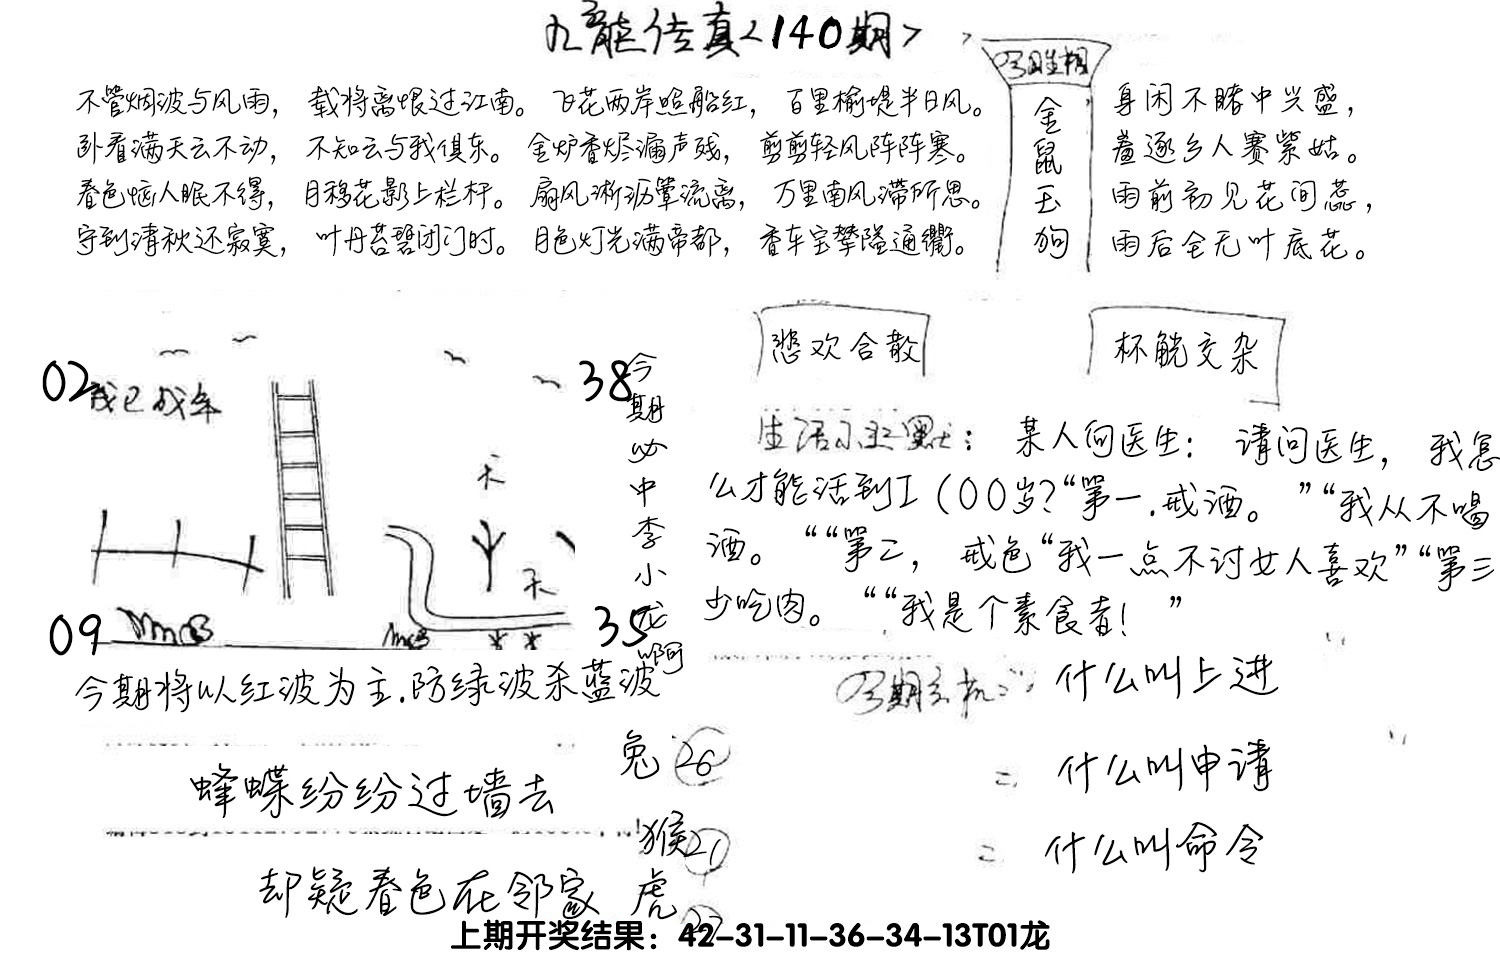 九龙传真<140期>
不管烟波与风雨，载将离恨过江南。飞花两岸照船红，百里榆堤半日风。
卧看满天云不动，不知云与我俱东。金炉香烬漏声残，剪剪轻风阵阵寒。
春色恼人眠不得，月移花影上栏杆。扇风淅沥簟流离，万里南风滞所思。
守到清秋还寂寞，叶丹苔碧闭门时。月色灯光满帝都，香车宝辇隘通衢。
金鼠玉狗
身闲不睹中兴盛，
羞逐乡人赛紫姑。
雨前初见花间蕊，
雨后全无叶底花。
悲欢合散
杯觥交杂
02
38
我已成年
天
天
09
35
今期必中李小龙啊
生活小幽默：某人问医生：请问医生，我怎
么才能活到I(00岁?“第一.戒酒。”“我从不喝
酒。““第二，戒色“我一点不讨女人喜欢”“第三
少吃肉。““我是个素食者！”
今期将以红波为主.防绿波杀蓝波
今期玄机：什么叫上进
= 什么叫申请
= 什么叫命令
蜂蝶纷纷过墙去
却疑春色在邻家
兔 26
猴 21
虎
上期开奖结果：42-31-11-36-34-13T01龙